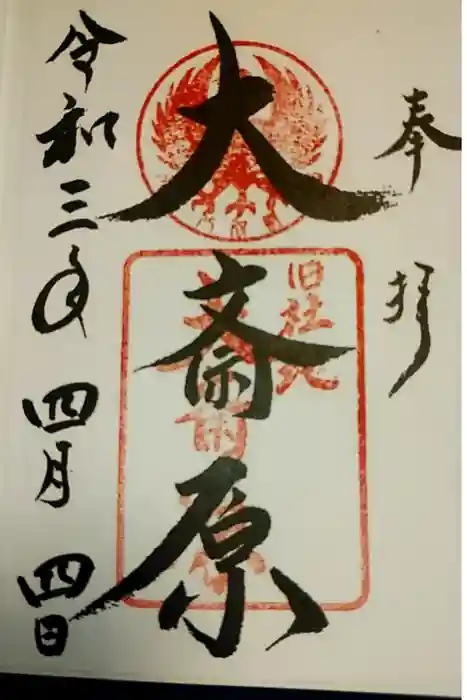 奉拝
旧社地
大斎原
令和三年四月四日